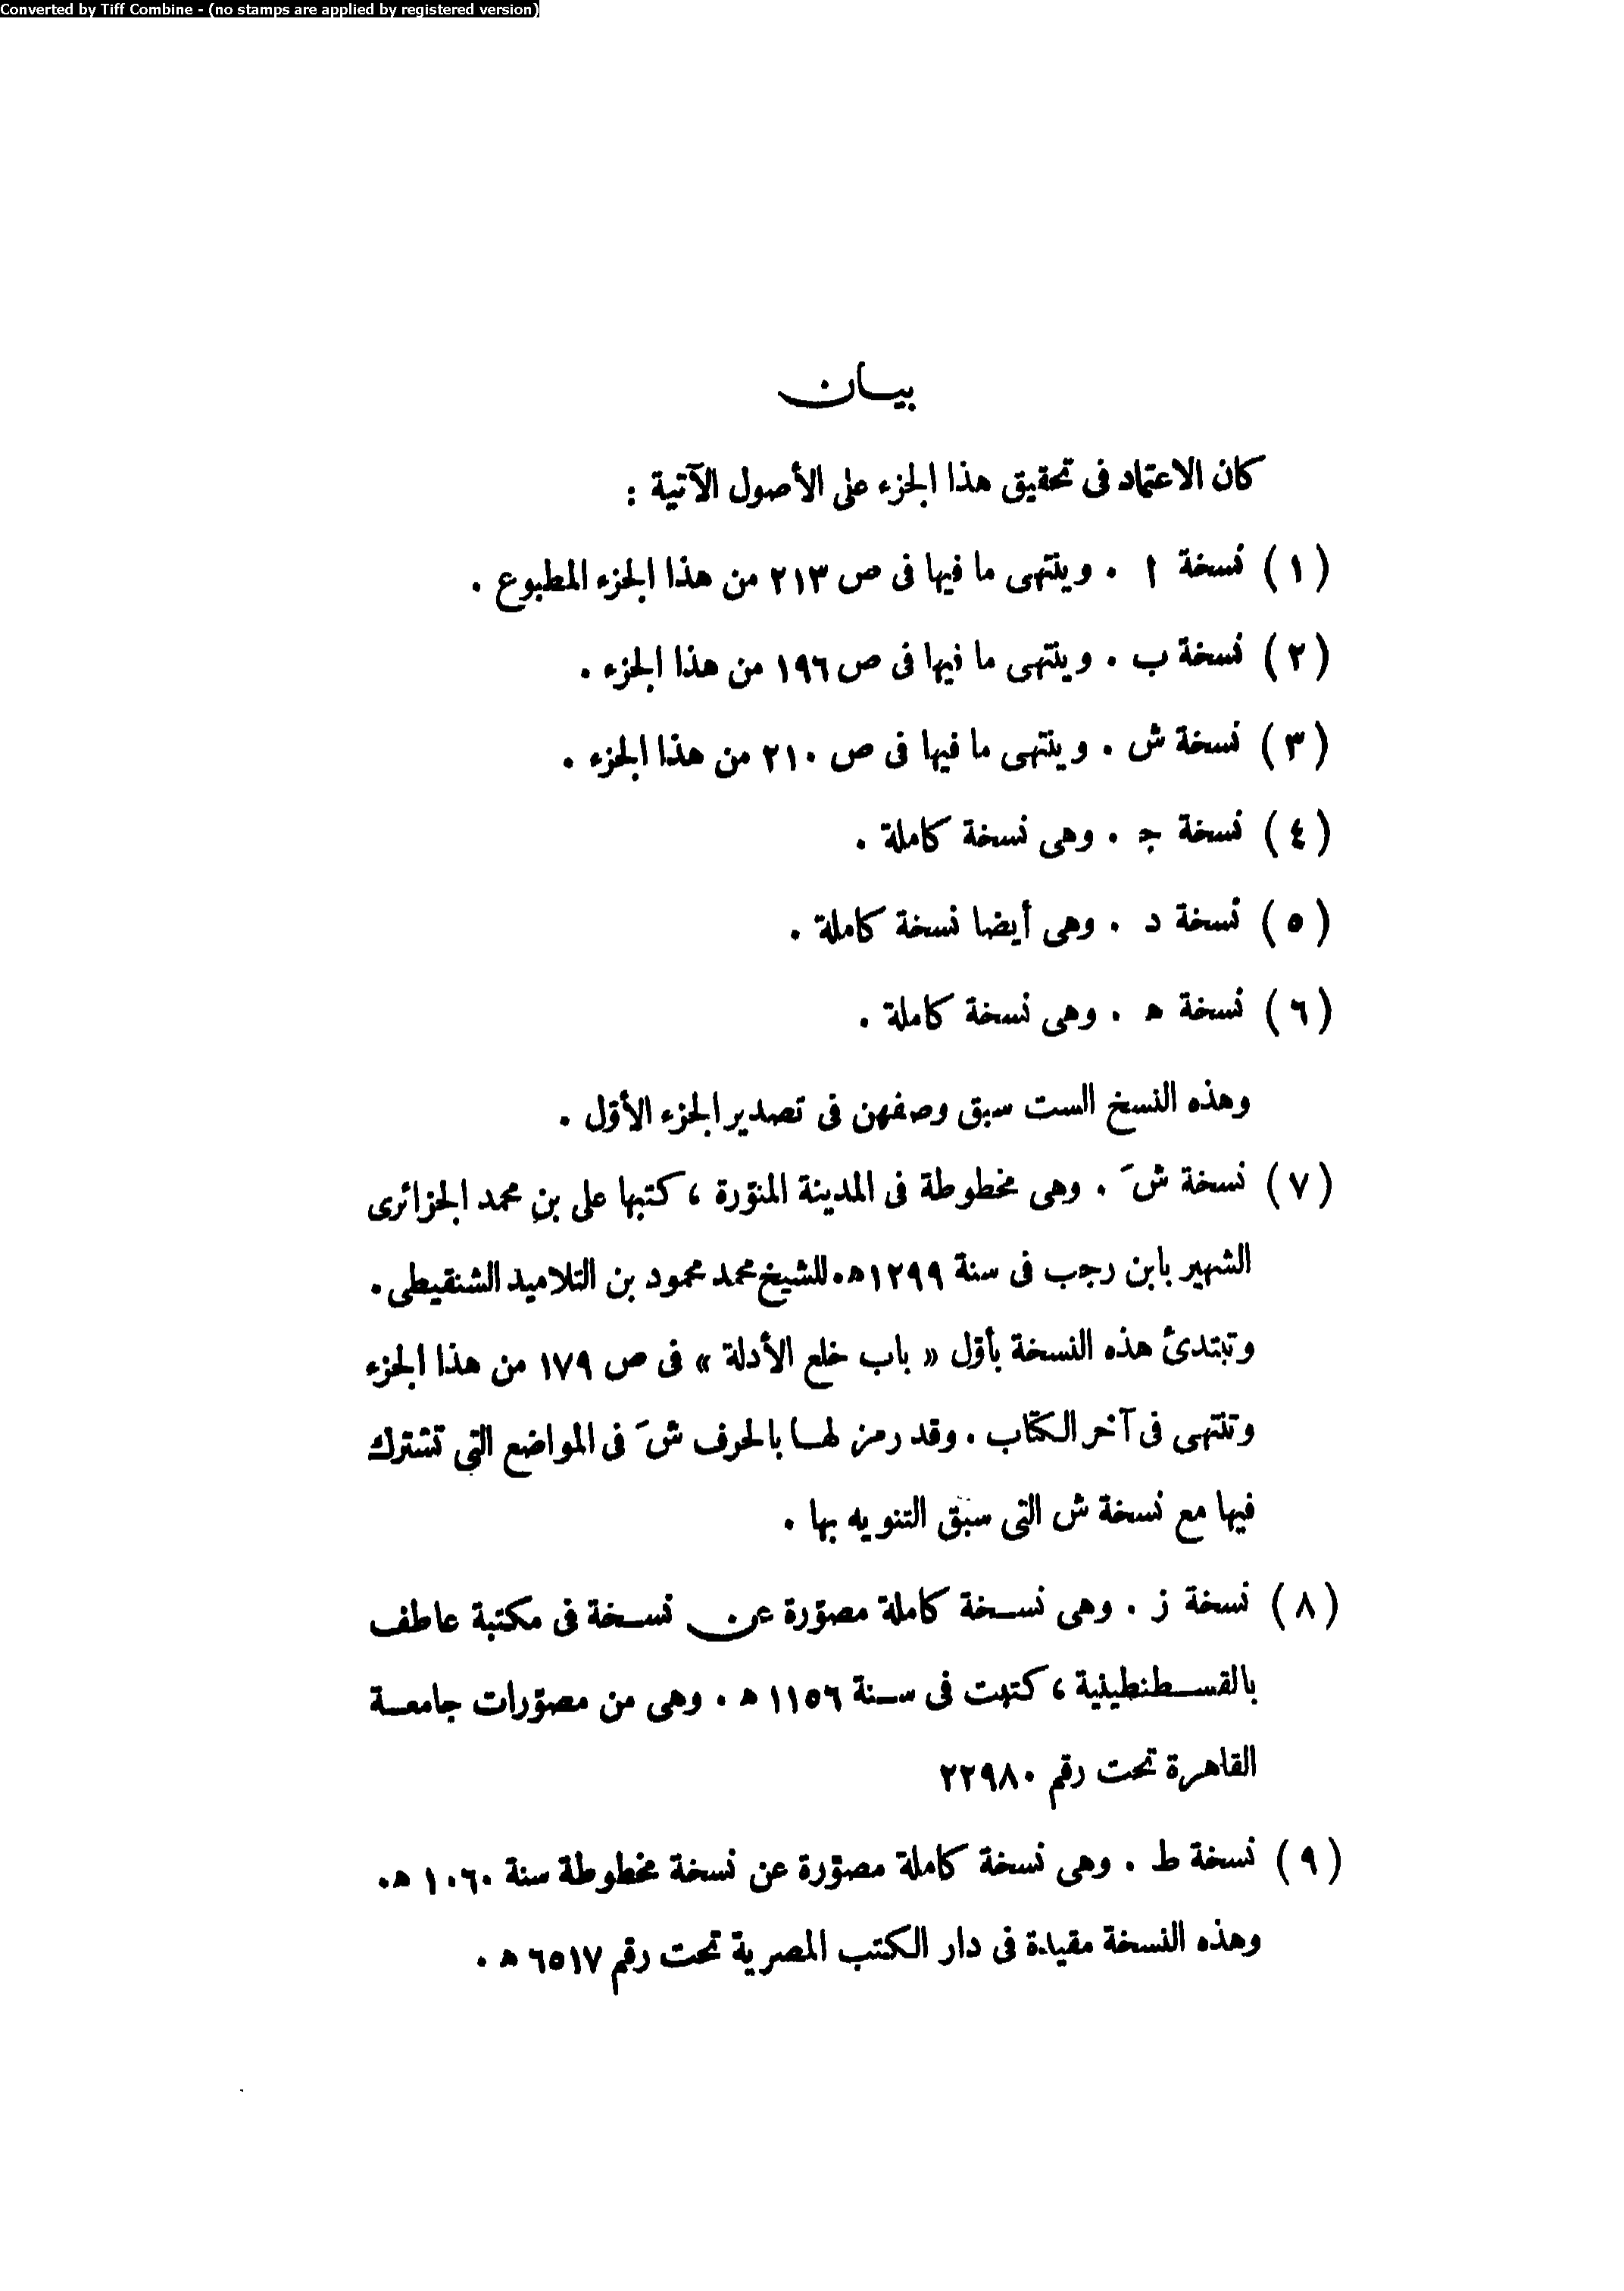 Converted by Tiff Combine - (no stamps are applied by registered version)
بيــان
كان الاعتماد فى تحقيق هذا الجزء على الأصول الآتية :
(١) نسخة ا . وينتهى ما فيها فى ص ٢١٣ من هذا الجزء المطبوع .
(٢) نسخة ب . وينتهى ما فيها فى ص ١٩٦ من هذا الجزء .
(٣) نسخة ش . وينتهى ما فيها فى ص ٢١٠ من هذا الجزء .
(٤) نسخة ج . وهى نسخة كاملة .
(٥) نسخة د . وهى أيضا نسخة كاملة .
(٦) نسخة ه . وهى نسخة كاملة .
وهذه النسخ الست سبق وصفهن فى تصدير الجزء الأوّل .
(٧) نسخة شَ . وهى مخطوطة فى المدينة المنوّرة ، كتبها على بن محمد الجزائرى
الشهير بابن رجب فى سنة ١٢٩٩ه . للشيخ محمد محمود بن التلاميد الشنقيطى .
وتبتدئ هذه النسخة بأوّل « باب خلع الأدلة » فى ص ١٧٩ من هذا الجزء
وتنتهى فى آخر الكتاب . وقد رمز لهــا بالحرف شَ فى المواضع التى تشترك
فيها مع نسخة ش التى سبق التنويه بها .
(٨) نسخة ز . وهى نســخة كاملة مصوّرة عن نســخة فى مكتبة عاطف
بالقســطنطينية ، كتبت فى ســنة ١١٥٦ ه . وهى من مصوّرات جامعــة
القاهرة تحت رقم ٢٢٩٨٠
(٩) نسخة ط . وهى نسخة كاملة مصوّرة عن نسخة مخطوطة سنة ١٠٦٠ ه .
وهذه النسخة مقيدة فى دار الكتب المصرية تحت رقم ٦٥١٧ ه .